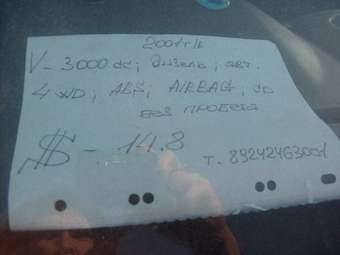 2001г/в
V - 3000 dc; дизель; авт.
4WD; ABS; AIRBAG;
без пробега
$ - 14.8
т. 89242463001